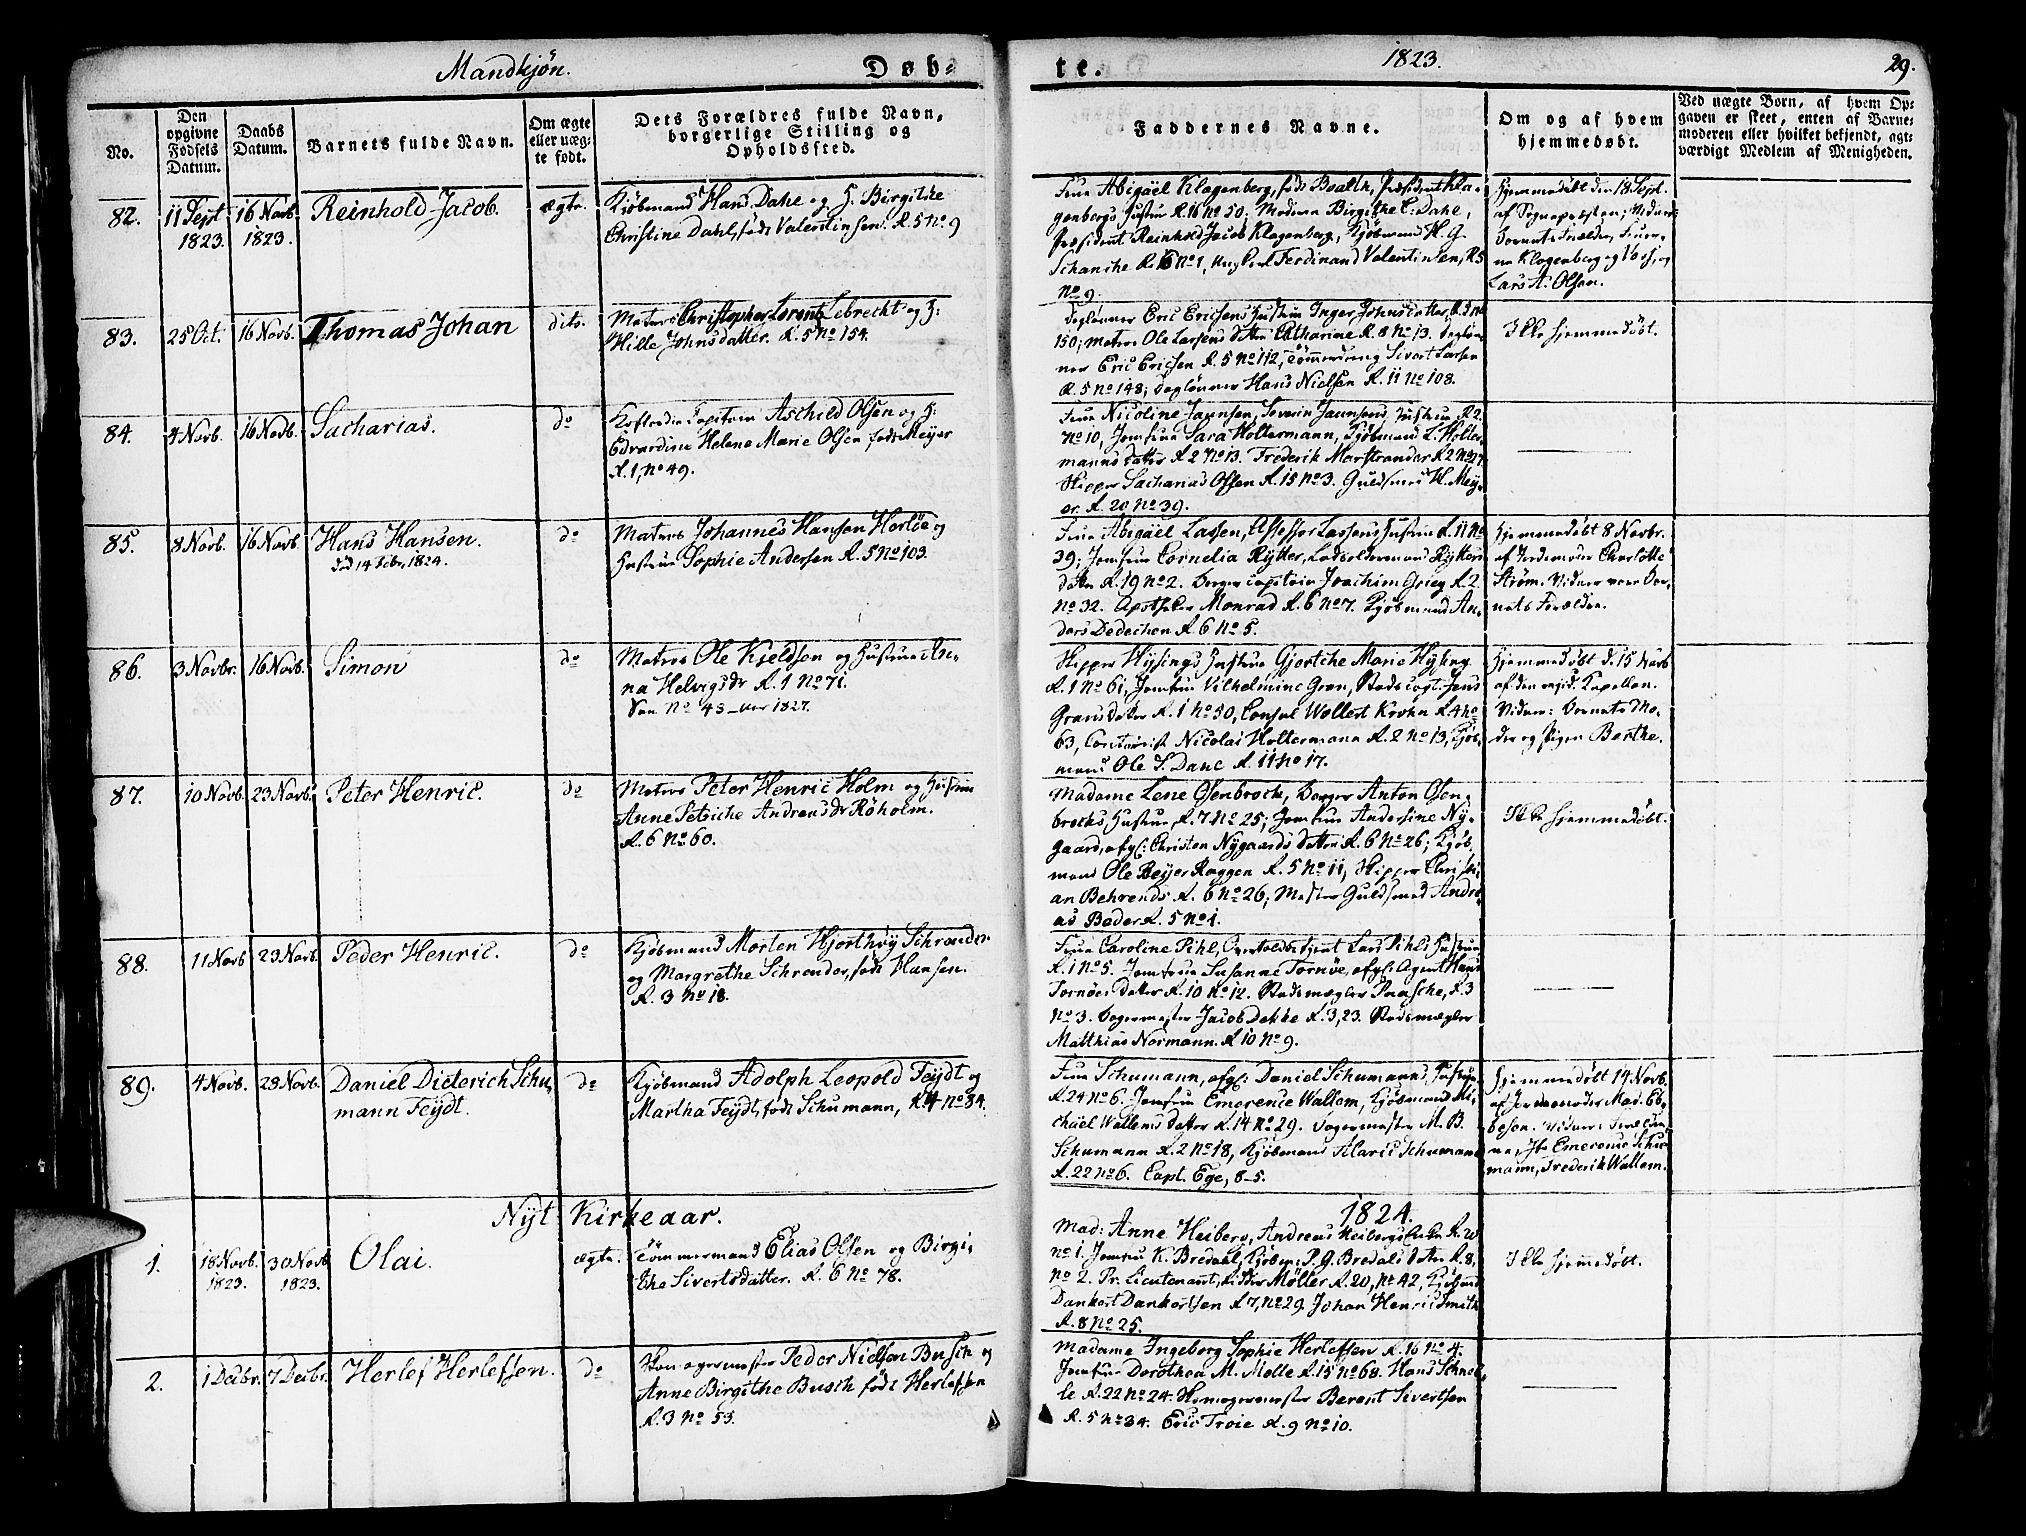 Mandkjøn.
Døb-
te.
1823.
29.
No.
Den
opgivne
Fødsels
Datum.
Daabs
Datum.
Barnets fulde Navn.
Om ægte
eller uæg-
te født.
Dets Forældres fulde Navn,
borgerlige Stilling og
Opholdssted.
Faddernes Navne.
Om og af hvem
hjemmedøbt.
Ved uægte Børn, af hvem Op-
gaven er skeet, enten af Barne-
moderen eller hvilket bekjendt, agt-
værdigt Medlem af Menigheden.
82.
11 Sept
1823.
16 Novb.
1823.
Reinhold Jacob.
ægte.
Kjøbmand Hans Dahl og H. Birgithe
Christine Dahl, født Valentinsen. R. 5 No 9
Frue Abigäel Klagenberg, født Boalth, Præsident Kla-
genbergs Hustru R. 16 No 50; Madam Birgithe C. Dahl,
Præsident Reinhold Jacob Klagenberg, Kjøbmand H. G.
Schanche R. 16 No 1, Ferdinand Valentinsen, R. 5
No 9.
Hjemmedøbt den 18 Sept.
af Sognepræsten; Vidner
Barnets Forældre, Frue
Klagenberg og
Lars A. Olsen.
83.
25 Oct.
16 Novb.
Thomas Johan
dito.
Matros Christopher Lorentz Lebrecht og H:
Hille Johnsdatter. R. 5 No 154.
Dagleier Eric Ericsens Hustru Inger Johnsdatter, R. 5 No
150; Matros Ole Larsens datter Catharine R. 8 No 13. Daglei-
ner Eric Ericsen R. 5 No 112, Tømmerdreng Sivert Larsen
R. 5 No 148; Dagleier Hans Nielsen R. 11 No 108.
Ikke hjemmedøbt.
84.
4 Novb.
16 Novb.
Sacharias.
do
Capitain Aschild Olsen og H:
Edvardine Helene Marie Olsen født Meyer
R. 1, No 49.
Frue Nicoline Jaunsen, Severin Jaunsens Hustrue R. 2
No 10, Jomfrue Sara Holtermann, Kjøbmand L. Holter-
manns datter R. 2 No 13. Frederik Marstrander R. 2 No 27
Skipper Sacharias Olsen R. 15 No 3. Guldsmed H. Mey-
er. R. 20 No 39.
85.
8 Novb.
16 Novb.
Hans Hansen.
død 14 Febr. 1824.
do
Matros Johannes Hansen Herløe og
Hustrue Sophie Andersen R. 5 No 103.
Frue Abigäel Lassen, Assessor Lassens Hustrue R. 11 No
39; Jomfrue Cornelia Rytter, Lods Oldermand Rytters
datter R. 19 No 2. Borger Capitain Joachim Grieg R. 2
No 32. Apotheker Monrad R. 6 No 7. Kjøbmand An-
ders Dedechen R. 6 No 5.
Hjemmedøbt 8 Novbr.
af Jordemoder Charlotte
Strøm. Vidner vare Bar-
nets Forældre.
86.
3 Novbr.
16 Novb.
Simon
do
Matros Ole Kjeldsen og Hustrue An-
na Helvigsdr R. 1 No 71.
See No 43 1827.
Skipper Hysings Hustrue Gjertche Marie Hysing
R. 1 No 61, Jomfrue Vilhelmine Gran, Stadsvogt Jens
Grans datter R. 1 No 50, Consul Wollert Krohn R. 4 No
63, Contorist Nicolai Holtermann R. 2 No 13, Kjøb-
mand Ole S. Danc R. 11 No 17.
Hjemmedøbt d. 15 Novb
af den resid. Kapellan.
Vidner: Barnets Mo-
der og Pigen Berthe.
87.
10 Novb.
23 Novb.
Peter Henric.
do
Matros Peter Henric Holm og Hustrue
Anne Petriche Andreasdr Røholm.
R. 6 No 60.
Madame Lene Osenbroch, Borger Anton Osen-
brochs Hustrue, R. 7 No 25; Jomfrue Andersine Ny-
gaard, afgl: Christen Nygaards datter R. 6 No 26; Kjøb-
mand Ole Beyer Raggen R. 5 No 11, Skipper Christi-
an Behrends R. 6 No 26; Mester Guldsmed Andre-
as Beder R. 5 No 1.
Ikke hjemmedøbt.
88.
11 Novb
23 Novb.
Peder Henric.
do
Kjøbmand Morten Hjorthøy Schrøder
og Margrethe Schrøder, født Hansen.
R. 3 No 18.
Frue Caroline Pihl, Overtoldbetjent Lars Pihls Hustrue
R. 1 No 5. Jomfrue Susanne Tornøe, afgl: Agent Hans
Tornøes datter R. 10 No 12. Stadsmægler Paasche, R. 3
No 3. Bagermester Jacob Dekke R. 3, 23. Stadsmægler
Matthias Normann. R. 10 No 9.
89.
4 Novb.
23 Novb.
Daniel Dieterich Schu-
mann Feydt.
do
Kjøbmand Adolph Leopold Feydt og
Martha Feydt, født Schumann, R. 4 No 34.
Frue Schumann, afgl: Daniel Schumanns Hustrue
R. 24 No 6. Jomfrue Emerence Wallem, Kjøbmand Mi-
chael Wallems datter R. 14 No 29. Bagermester M. B.
Schumann R. 2 No 18, Kjøbmand Alaric Schumann
R. 22 No 6. Capt. Ege, 8-5.
Hjemmedøbt 14 Novb.
af Jordemoder Mad. Eb-
besen. Vidner: Foræld-
rene, Jfr Emerence Schu-
mann, Frederik Wallem.
Nyt Kirkeaar.
1824.
1.
18 Novb.
1823.
30 Novb
1823.
Olai.
ægte.
Tømmermand Elias Olsen og Birgi-
the Sivertsdatter. R. 6 No 78.
Mad: Anne Heiberg, Andreas Heibergs Enke R. 20
No 1. Jomfru K. Bredal, Kjøbm: P. G. Bredals datter R. 8,
No 2. Pr. Lieutenant, Ridder Møller R. 20, No 42, Kjøbmd
Dankert Dankertsen R. 7, No 29 Johan Henric Smith
R. 8 No 25.
Ikke hjemmedøbt.
2.
1 Decbr.
7 Decbr.
Herlef Herlefsen.
do
Hanagermester Peder Nielsen Busch og
Anne Birgithe Busch født Herlefsen
R. 3 No 53.
Madame Ingeborg Sophie Herlefsen R. 16 No 4.
Jomfrue Dorothea M. Møller R. 15 No 68. Hans Schnel-
le R. 22 No 24. Berent Sivertsen
R. 5 No 34. Eric Troie R. 9 No 10.